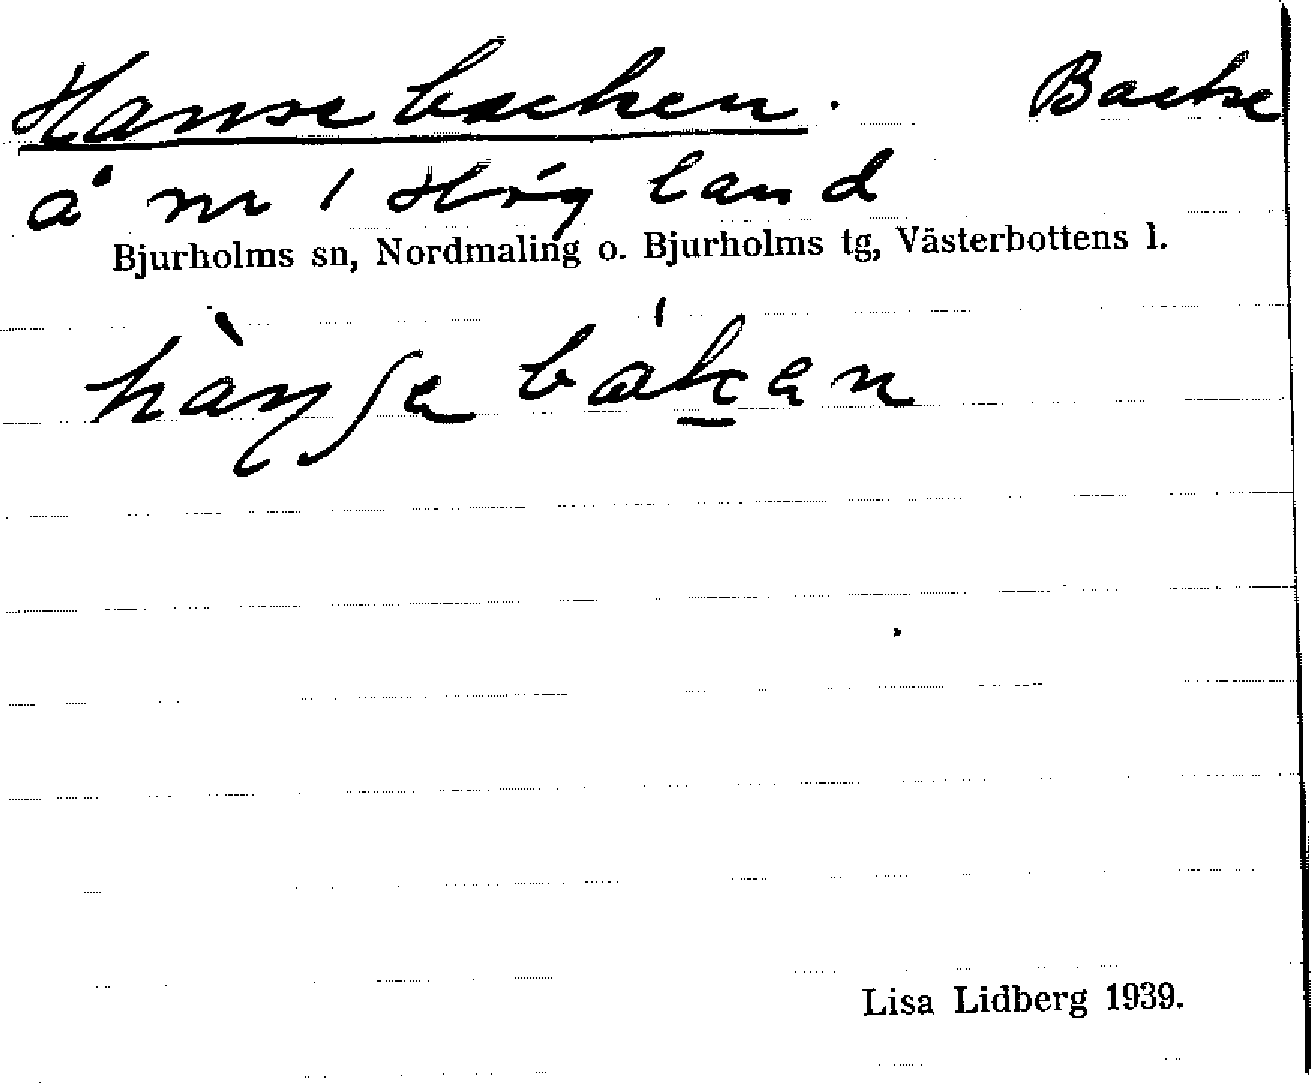 Hansebacken. Backe
å nr 1 Högland
Bjurholms sn, Nordmaling o. Bjurholms tg, Västerbottens l.
Lisa Lidberg 1939.